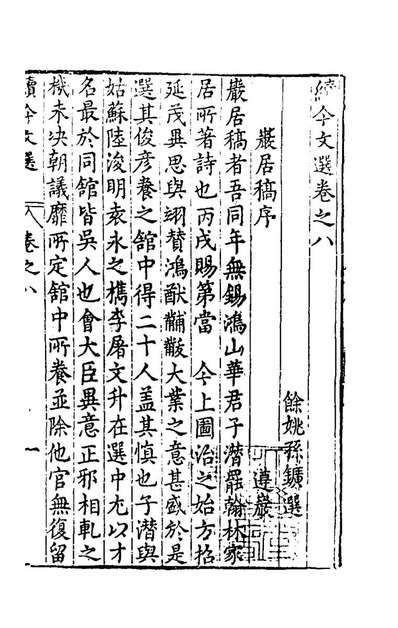 續今文選卷之八
餘姚孫鑛選
巖居稿序
遵巖
巖居稿者吾同年無錫鴻山華君子潛罷翰林家
居所著詩也丙戌賜第當 今上圖治之始方招
延茂異思與翊贊鴻猷黼黻大業之意甚盛於是
選其俊彥養之舘中得二十人盖其慎也子潛與
姑蘇陸浚明袁永之檇李屠文升在選中尤以才
名最於同舘皆吳人也會大臣異意正邪相軋之
機未决朝議靡所定舘中所養並除他官無復留
續今文選
卷之八
一